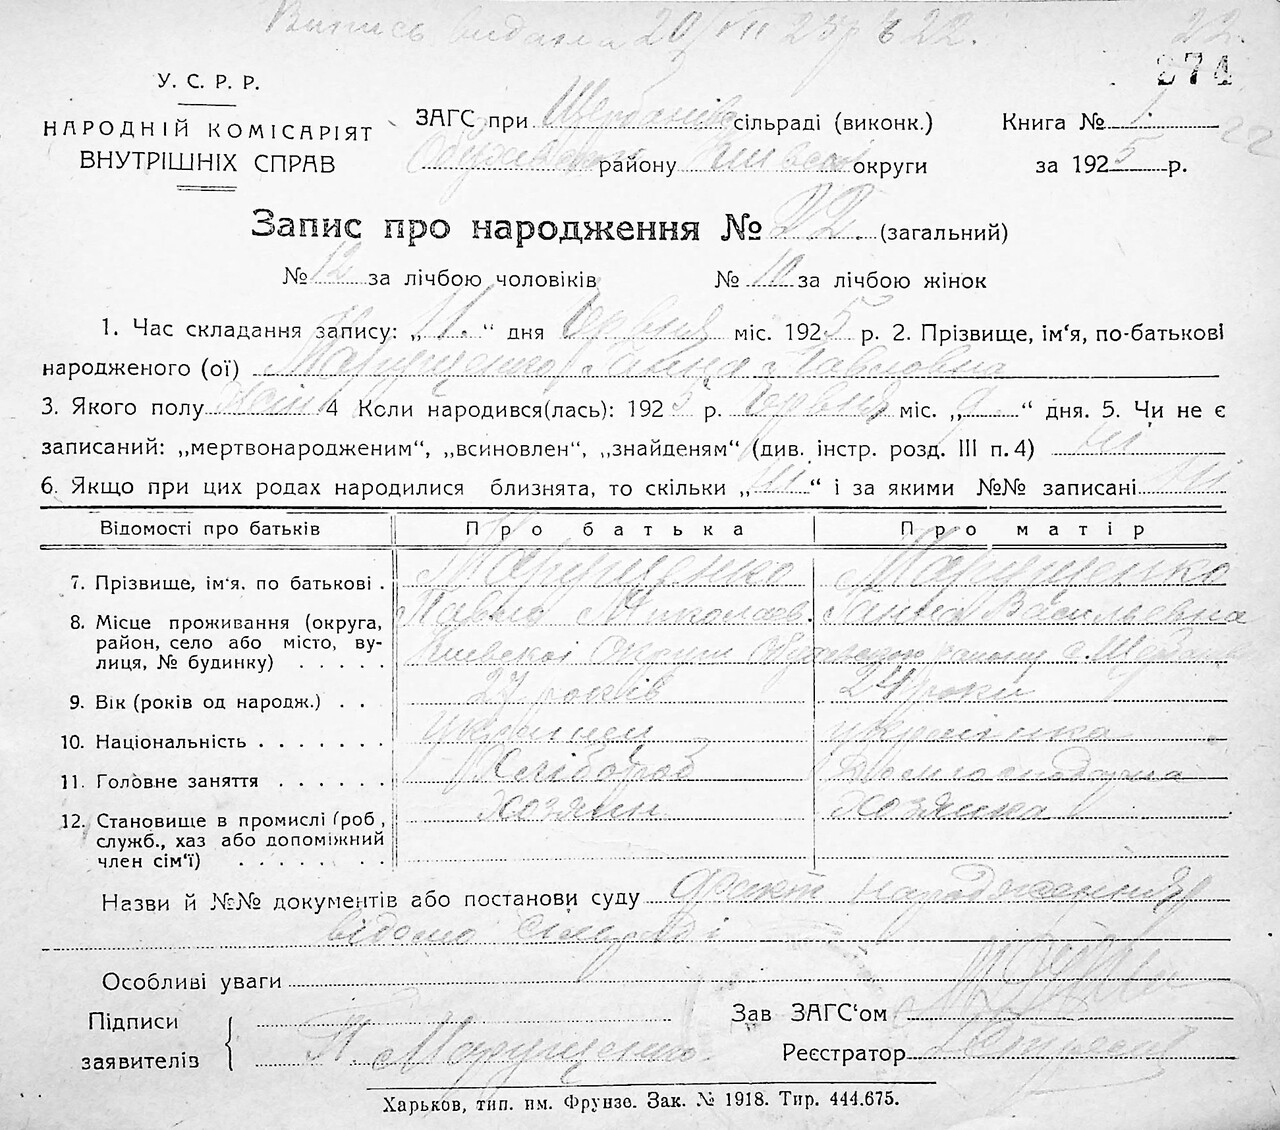 Випись видана 29/VII 23р № 22.
22.
274
У. С. Р. Р.
НАРОДНІЙ КОМІСАРІЯТ
ВНУТРІШНІХ СПРАВ
ЗАГС при Щербанів сільраді (виконк.)
району Київскої округи
Книга № 1.
22
за 1925 р.
Запис про народження № 22. (загальний)
№ 12 за лічбою чоловіків № 10 за лічбою жінок
1. Час складання запису: „11.“ дня Червня міс. 1925 р. 2. Прізвище, ім‘я, по-батькові
народженого (ої) Марущенко Ганна Павловна
3. Якого полу жін 4 Коли народився(лась): 1925 р. Червня міс. „9“ дня. 5. Чи не є
записаний: „мертвонародженим“, „всиновлен“, „знайденям“ (див. інстр. розд. III п. 4) ні
6. Якщо при цих родах народилися близнята, то скільки „ні“ і за якими №№ записані ні
Відомості про батьків Про батька Про матір
7. Прізвище, ім‘я. по батькові . Марущенко Марущенко
Павло Миколаєв. Ганна Васильевна
8. Місце проживання (округа,
район, село або місто, ву-
лиця, № будинку) . . . . .
Київскої Округи району с.
9. Вік (років од народж.) . . 27 років 24 роки
10. Національність . . . . . . . українец українка
11. Головне заняття . . . . . . Хлібороб Домгосподарка
12. Становище в промислі (роб,
служб., хаз або допоміжний
член сім‘ї) . . . . . . .
хозяин хозяйка
Назви й №№ документів або постанови суду факт народження
відомо сілраді
Особливі уваги
Підписи
заявителів
П. Марущенко.
Зав ЗАГС‘ом
Реєстратор
Харьков, тип. им. Фрунзе. Зак. № 1918. Тир. 444.675.